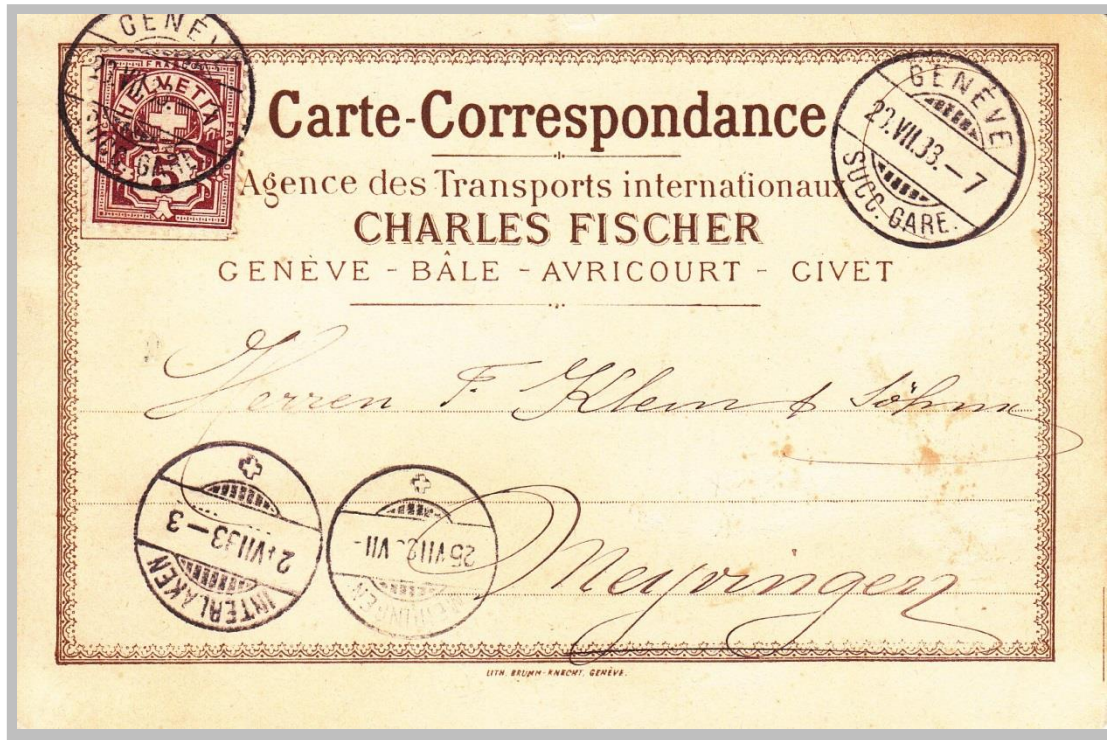 GENÈVE
HELVETIA
5
Carte-Correspondance
GENÈVE
VII.33.–7
SUCC. GARE.
Agence des Transports internationaux
CHARLES FISCHER
GENÈVE - BÂLE - AVRICOURT - GIVET
Herren F. Klein & Söhne
Meyringen
INTERLAKEN
VII.33–3
LITH. BRUMM-KNECHT, GENÈVE.